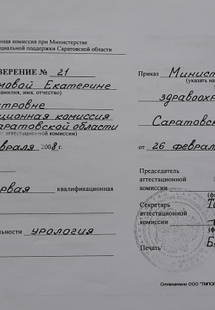 ная комиссия при Министерстве
циальной поддержки Саратовской области
ВЕРЕНИЕ № 21
новой Екатерине
амилия, имя, отчество)
тровне
ционная комиссия
аратовской области
аттестационной комиссии)
евраля 2008 г.
рвая квалификационная
льности урология
Приказ Минист
здравоохр
Саратовс
от 26 феврал
Председатель
аттестационной
комиссии
Секретарь
аттестационной
комиссии
Печать
Отпечатано ООО "ТИПОГ